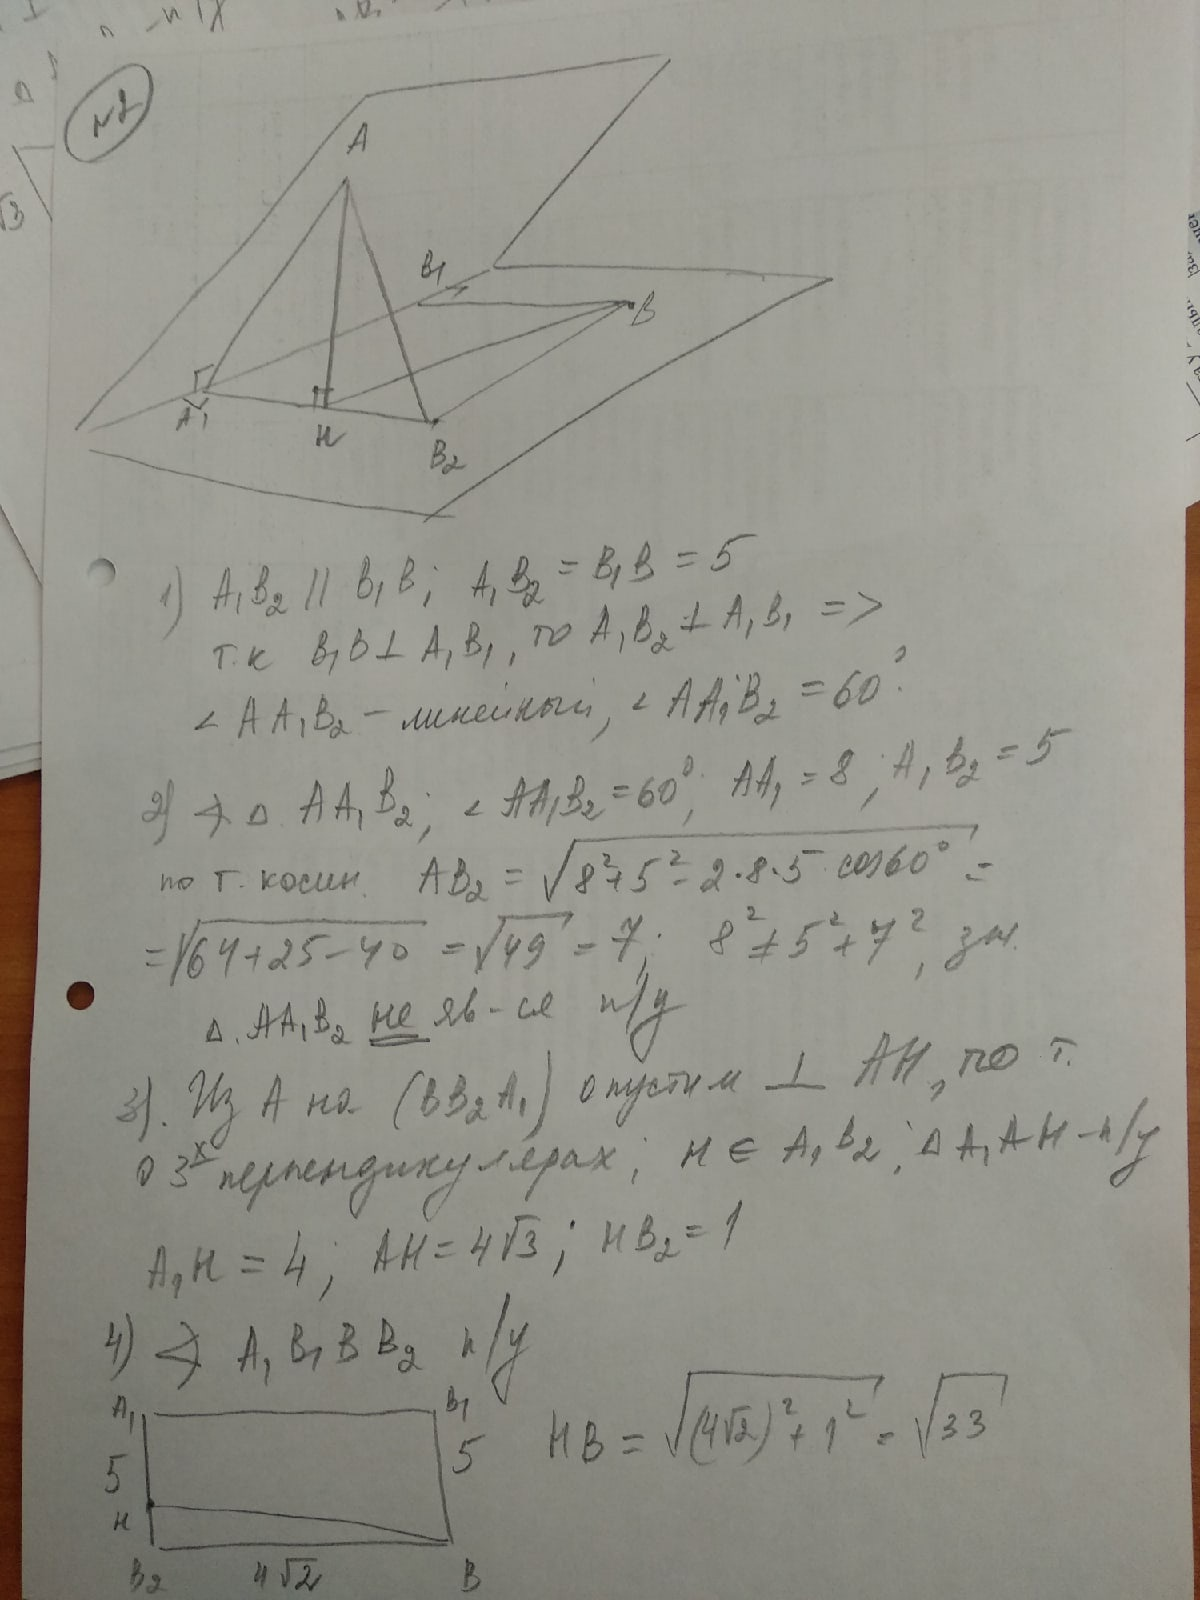 √3
N2
A
B₁
B
A₁
H
B₂
1) A₁B₂ || B₁B; A₁B₂ = B₁B = 5
т.к B₁B ⊥ A₁B₁, то A₁B₂ ⊥ A₁B₁ =>
∠ AA₁B₂ – линейный, ∠ AA₁B₂ = 60°.
2) ⮜ △. AA₁B₂; ∠ AA₁B₂ = 60°; AA₁ = 8; A₁B₂ = 5
по т. косин. AB₂ = √(8² + 5² - 2·8·5 cos60°) =
= √(64+25-40) = √49 = 7; 8² ≠ 5² + 7², зн.
△. AA₁B₂ не яв-ся п/у
3). Из A на (BB₂A₁) опустим ⊥ AH, по т.
о 3х перпендикулярах; H ∈ A₁B₂; △ A₁AH – п/у
A₁H = 4; AH = 4√3; HB₂ = 1
4) ⮜ A₁B₁BB₂ п/у
A₁ B₁
5 5
HB = √((4√2)² + 1²) = √33
H
B₂ 4√2 B